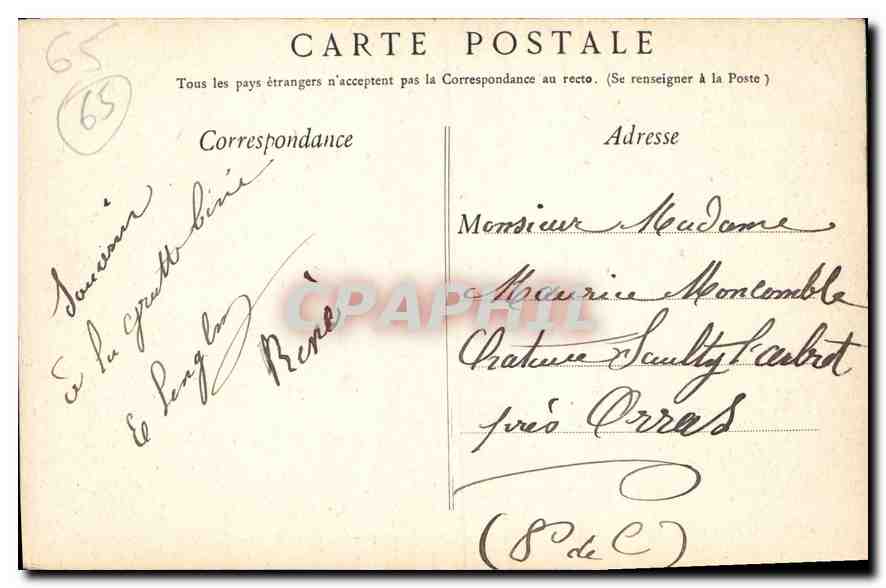 65
65
CARTE POSTALE
Tous les pays étrangers n'acceptent pas la Correspondance au recto. (Se renseigner à la Poste)
Correspondance
Souvenir
à la grotte
René
Adresse
Monsieur Madame
Maurice Moncomble
Saulty l'arbret
près Arras
(P de C)
CPAPHIL